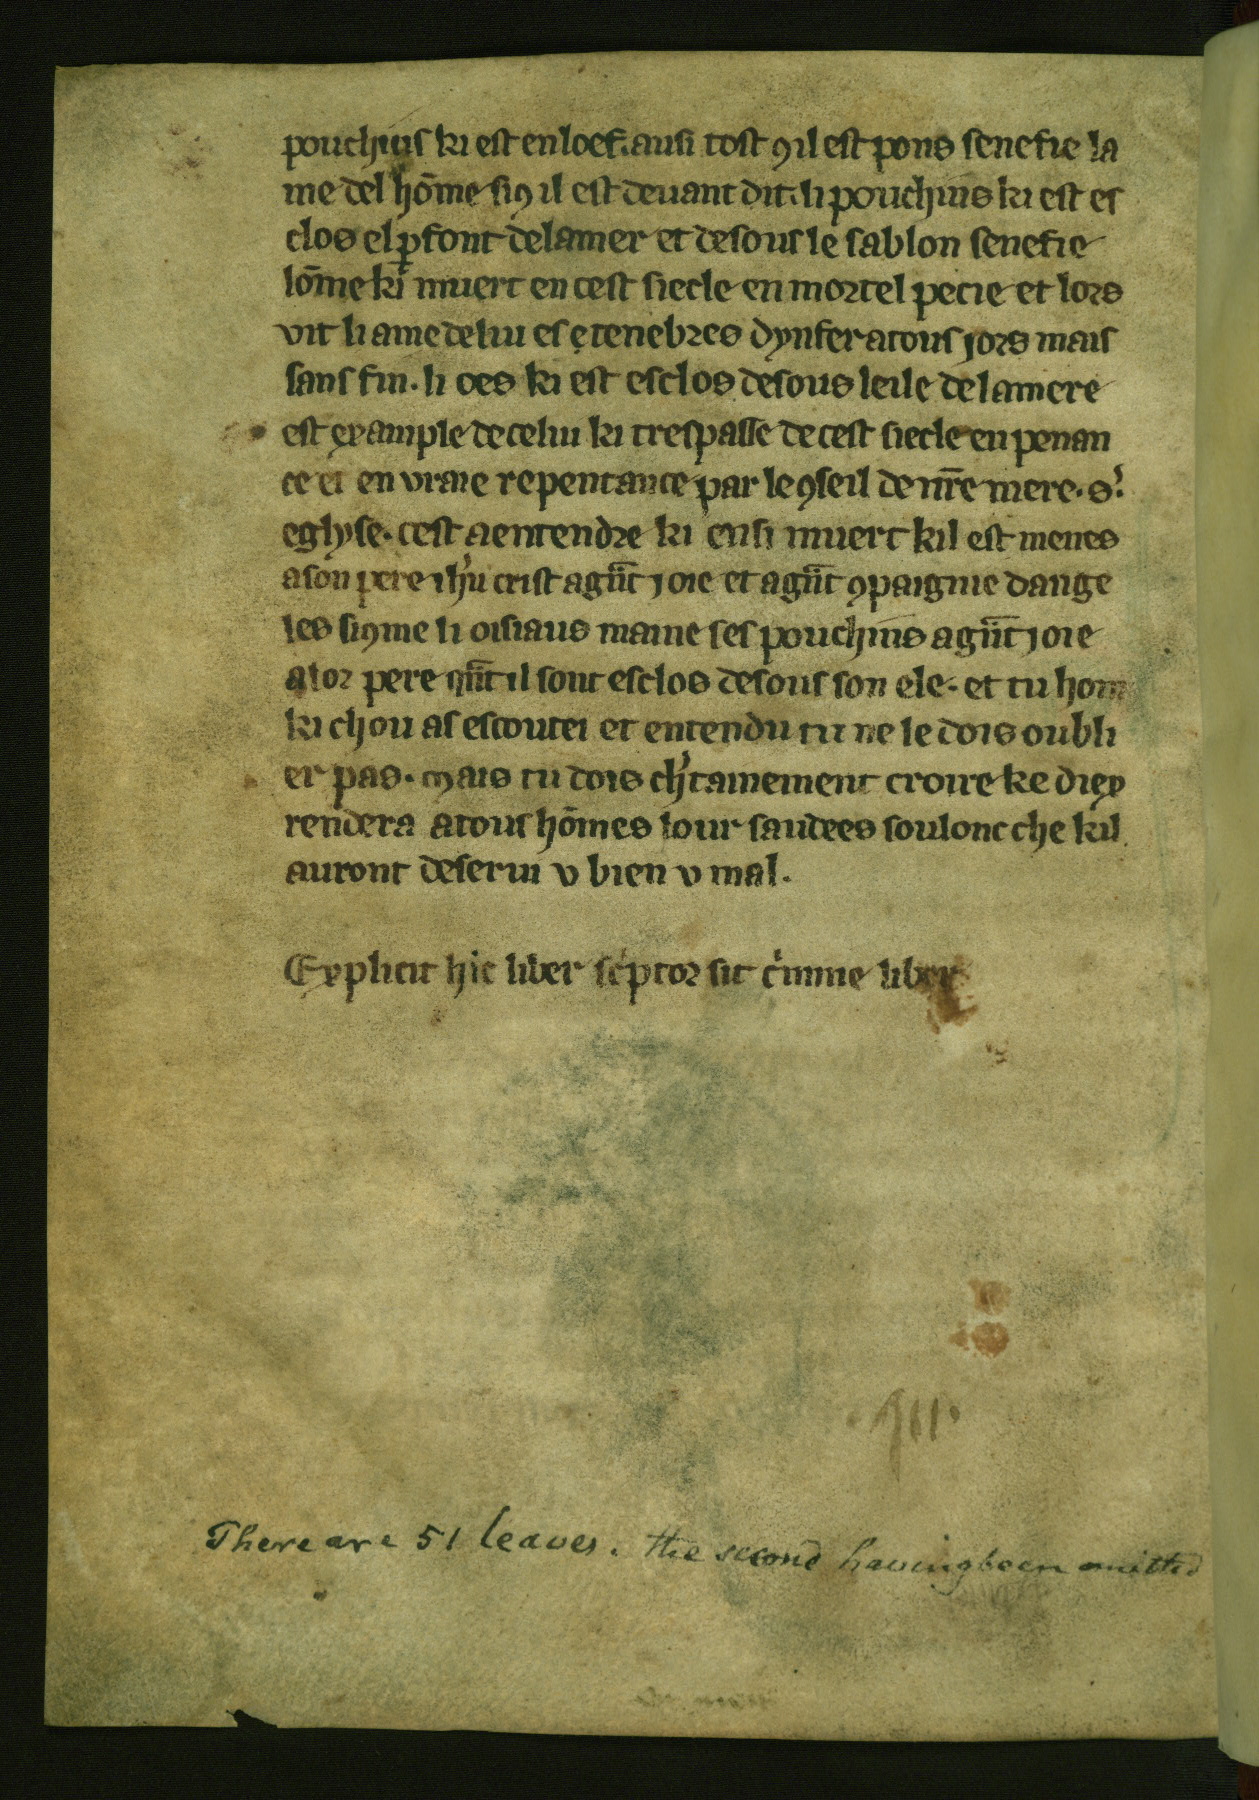 pouchins ki est en loef. ausi tost ꝯ il est pons senefie la
me del hōme si ꝯ il est deuant dit. li pouchins ki est es
clos el ꝑfont de la mer et desous le sablon senefie
lōme ki muert en cest siecle en mortel pecie et lors
vit li ame de lui es tenebres dynfer a tous jors mais
sans fin. li oes ki est esclos desous leile de la mere
est example de celui ki trespasse de cest siecle en penan
ce et en vraie repentance par le ꝯseil de nr̄e mere. s.
eglyse. cest a entendre ki ensi muert kil est menes
a son pere ihū crist a gn̄t joie et a gn̄t ꝯpaignie dange
les si ꝯme li oisiaus maine ses pouchins a gn̄t joie
a lor pere qn̄t il sont esclos desous son ele. et tu hom
ki chou as escoutei et entendu tu ne le dois oubli
er pas. mais tu dois ch'tainement croire ke diex
rendera a tous hōmes lour saudees soulonc che kil
auront deserui v bien v mal.
Explicit hic liber sc'ptor sit c'imine liber
There are 51 leaves. the second having been omitted